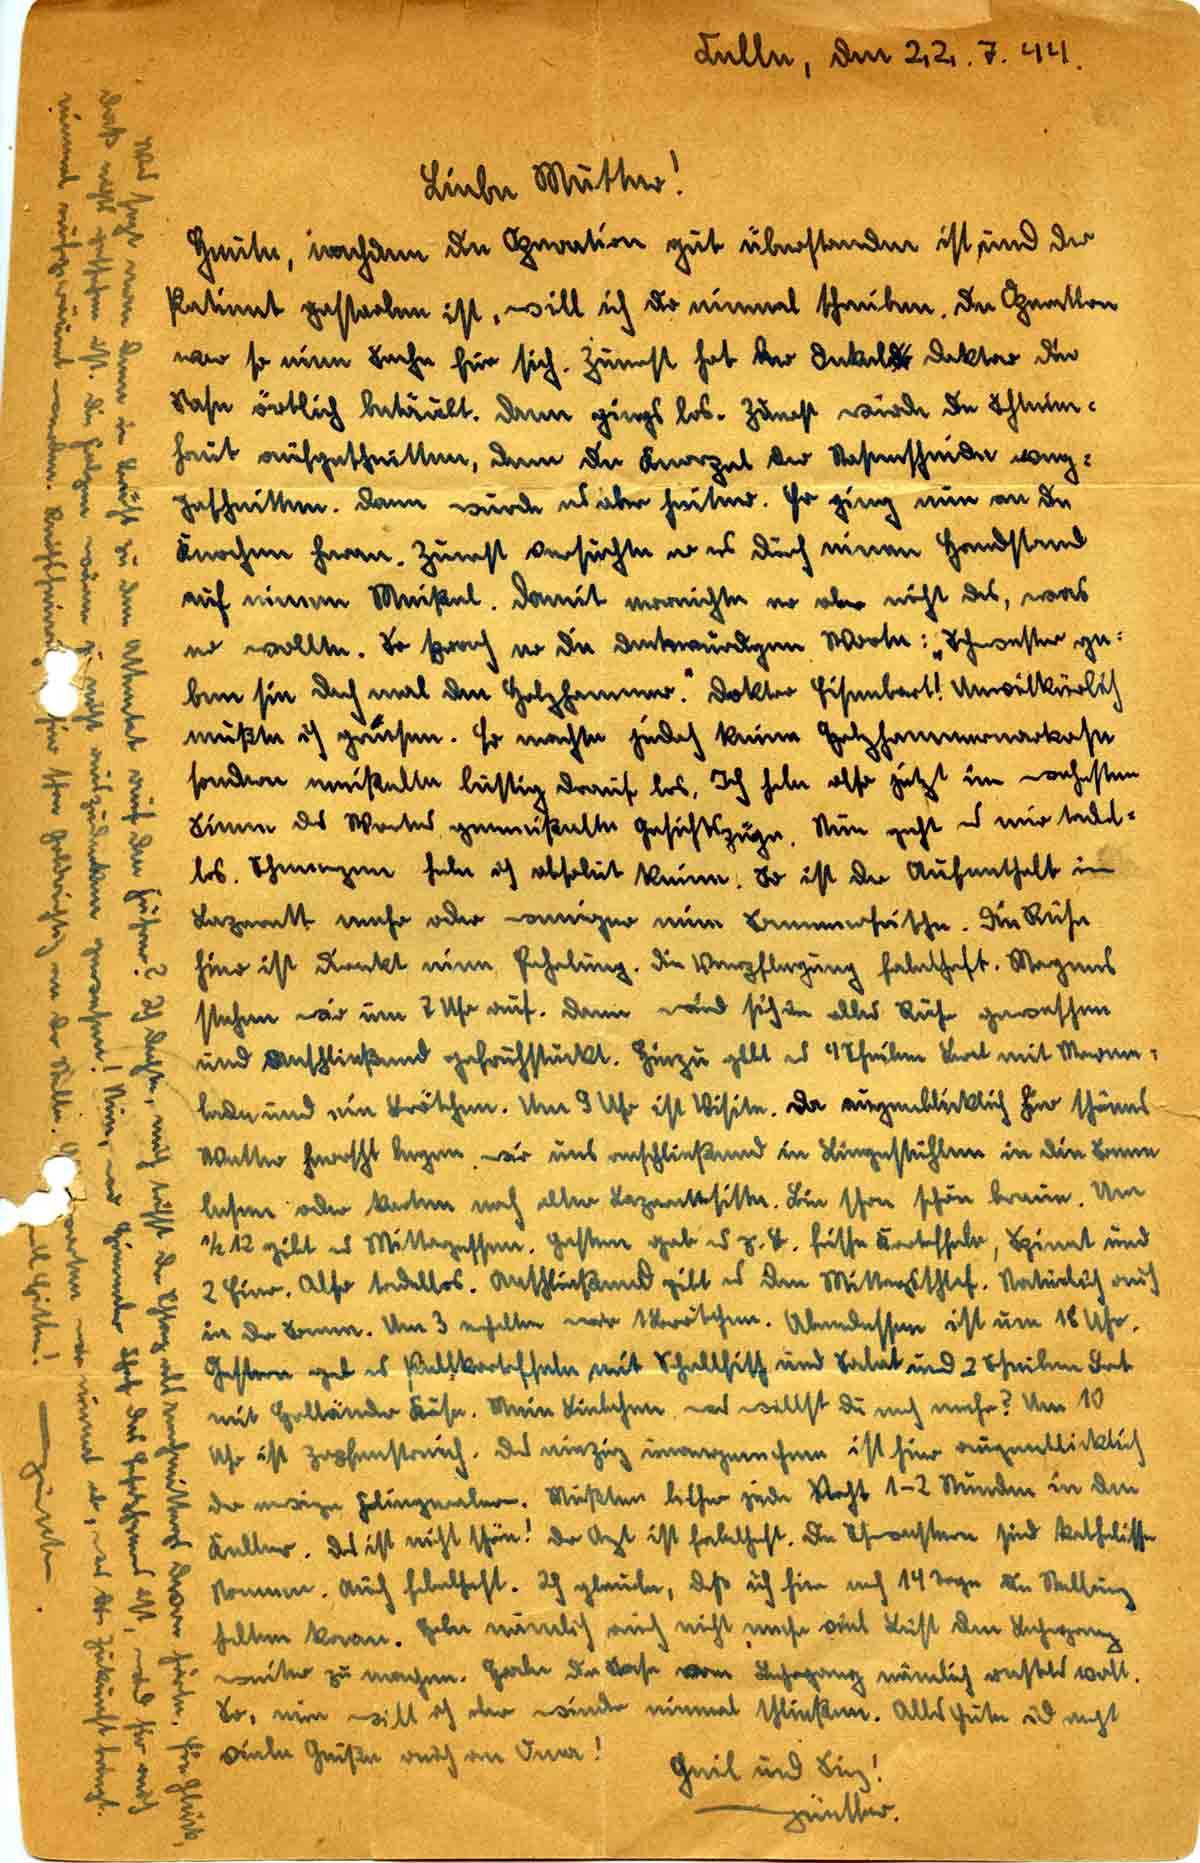 Celle, den 22.7.44.
Liebe Mutter!
Heute, nachdem die Operation gut überstanden ist, und der
Patient gestorben ist, will ich dir einmal schreiben. Die Operation
war so eine Sache für sich. Zuerst hat der Onkel Doktor die
Nase örtlich betäubt. Dann gings los. Zuerst wurde die Schleim-
haut aufgeschnitten, dann die Knorpel der Nasenscheide weg-
geschnitten. Dann wurde es aber heiter. Er ging nun an die
Knochen heran. Zuerst versuchte er es durch einen Handstand
auf einem Meißel. Damit erreichte er aber nicht das, was
er wollte. So sprach er die denkwürdigen Worte: „Schwester ge-
ben sie doch mal den Holzhammer." Doktor Eisenbart! Unwilkürlich
mußte ich grinsen. Er machte jedoch keine Holzhammernarkose
sondern meißelte lustig drauf los. Ich habe also jetzt im wahrsten
Sinne des Wortes gemeißelte Gesichtszüge. Nun geht es mir tadel-
los. Schmerzen habe ich absolut keine. So ist der Aufenthalt im
Lazarett mehr oder weniger eine Sommerfrische. Die Ruhe
hier ist direkt eine Erholung. Die Verpflegung fabelhaft. Morgens
stehen wir um 7 Uhr auf. Dann wird sich in aller Ruhe gewaschen
und anschließend gefrühstückt. Hierzu gibt es 4 Scheiben Brot mit Marme-
lade und ein Brötchen. Um 9 Uhr ist Visite. Da augenblicklich hier schönes
Wetter herrscht liegen wir uns anschließend in Liegestühlen in die Sonne
lesen oder karten nach alter Lazarettsitte. Bin schon schön braun. Um
½ 12 gibt es Mittagessen. Gestern gab es z.B. frische Kartoffeln, Spinat und
2 Eier. Also tadellos. Anschließend gibt es den Mittagsschlaf. Natürlich auch
in der Sonne. Um 3 erhalten wir 1 Brötchen. Abendessen ist um 18 Uhr.
Gestern gab es Pellkartoffeln mit Schellfisch und Salat und 2 Scheiben Brot
mit Holländer Käse. Mein Liebchen was willst du noch mehr? Um 10
Uhr ist Zapfenstreich. Das einzig unangenehme ist hier augenblicklich
der ewige Fliegeralarm. Mußten bisher jede Nacht 1-2 Stunden in den
Keller. Das ist nicht schön! Der Arzt ist fabelhaft. Die Schwestern sind katholische
Nonnen. Auch fabelhaft. Ich glaube, daß ich hier noch 14 Tage die Stellung
halten kann. Habe nämlich auch nicht mehr viel Lust den Lehrgang
weiter zu machen. Habe die Nase vom Lehrgang nämlich restlos voll.
So, nun will ich aber wieder einmal schließen. Alles Gute und recht
viele Grüße auch an Oma!
Heil und Sieg!
Günther.
Was sagt man denn in zu dem Attentat auf den Führer? Ich dachte, mich trifft der Schlag als nachmittags davon hörte.